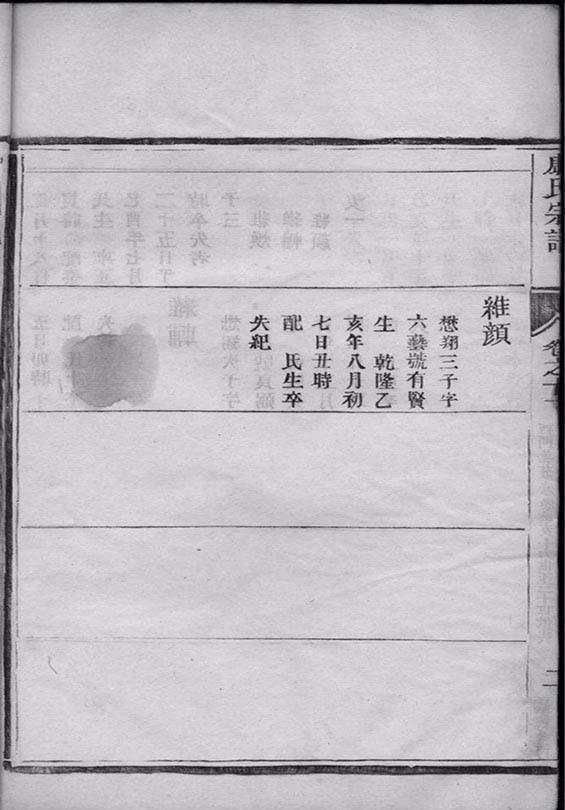 氏宗譜
卷之
二
維顔
懋翔三子字
六藝號有賢
生　乾隆乙
亥年八月初
七日丑時
配　氏生卒
失紀